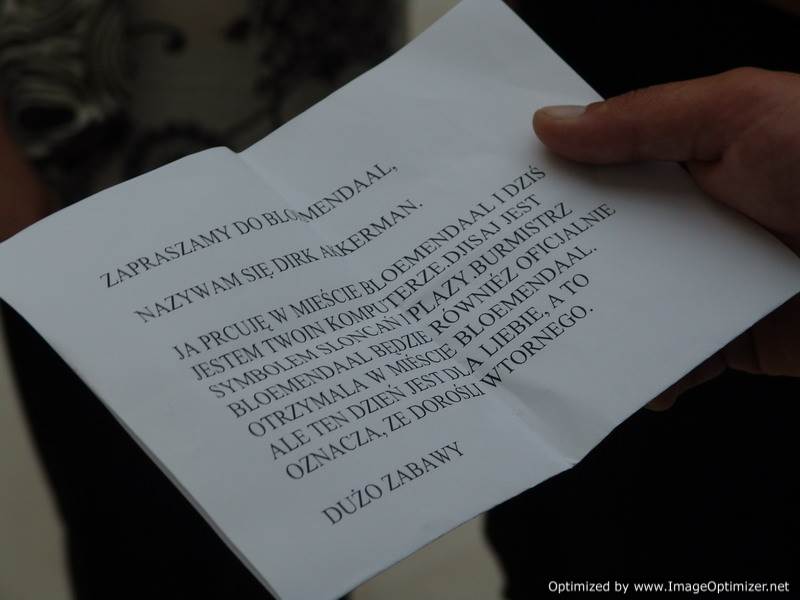 ZAPRASZAMY DO BLOEMENDAAL,
NAZYWAM SIĘ DIRK AKKERMAN.
JA PRCUJĘ W MIEŚCIE BLOEMENDAAL I DZIŚ
JESTEM TWOIN KOMPUTERZE. DJISAJ JEST
SYMBOLEM SLONCAŃ I PLAZY BURMISTRZ
BLOEMENDAAL BĘDZIE RÓWNIÉZ OFICJALNIE
OTRZYMALA W MIEŚCIE BLOEMENDAAL.
ALE TEN DZIEŃ JEST DLA LIEBIE, A TO
OZNACZA, ZE DOROŚLI WTORNEGO.
DUŻO ZABAWY
Optimized by www.ImageOptimizer.net